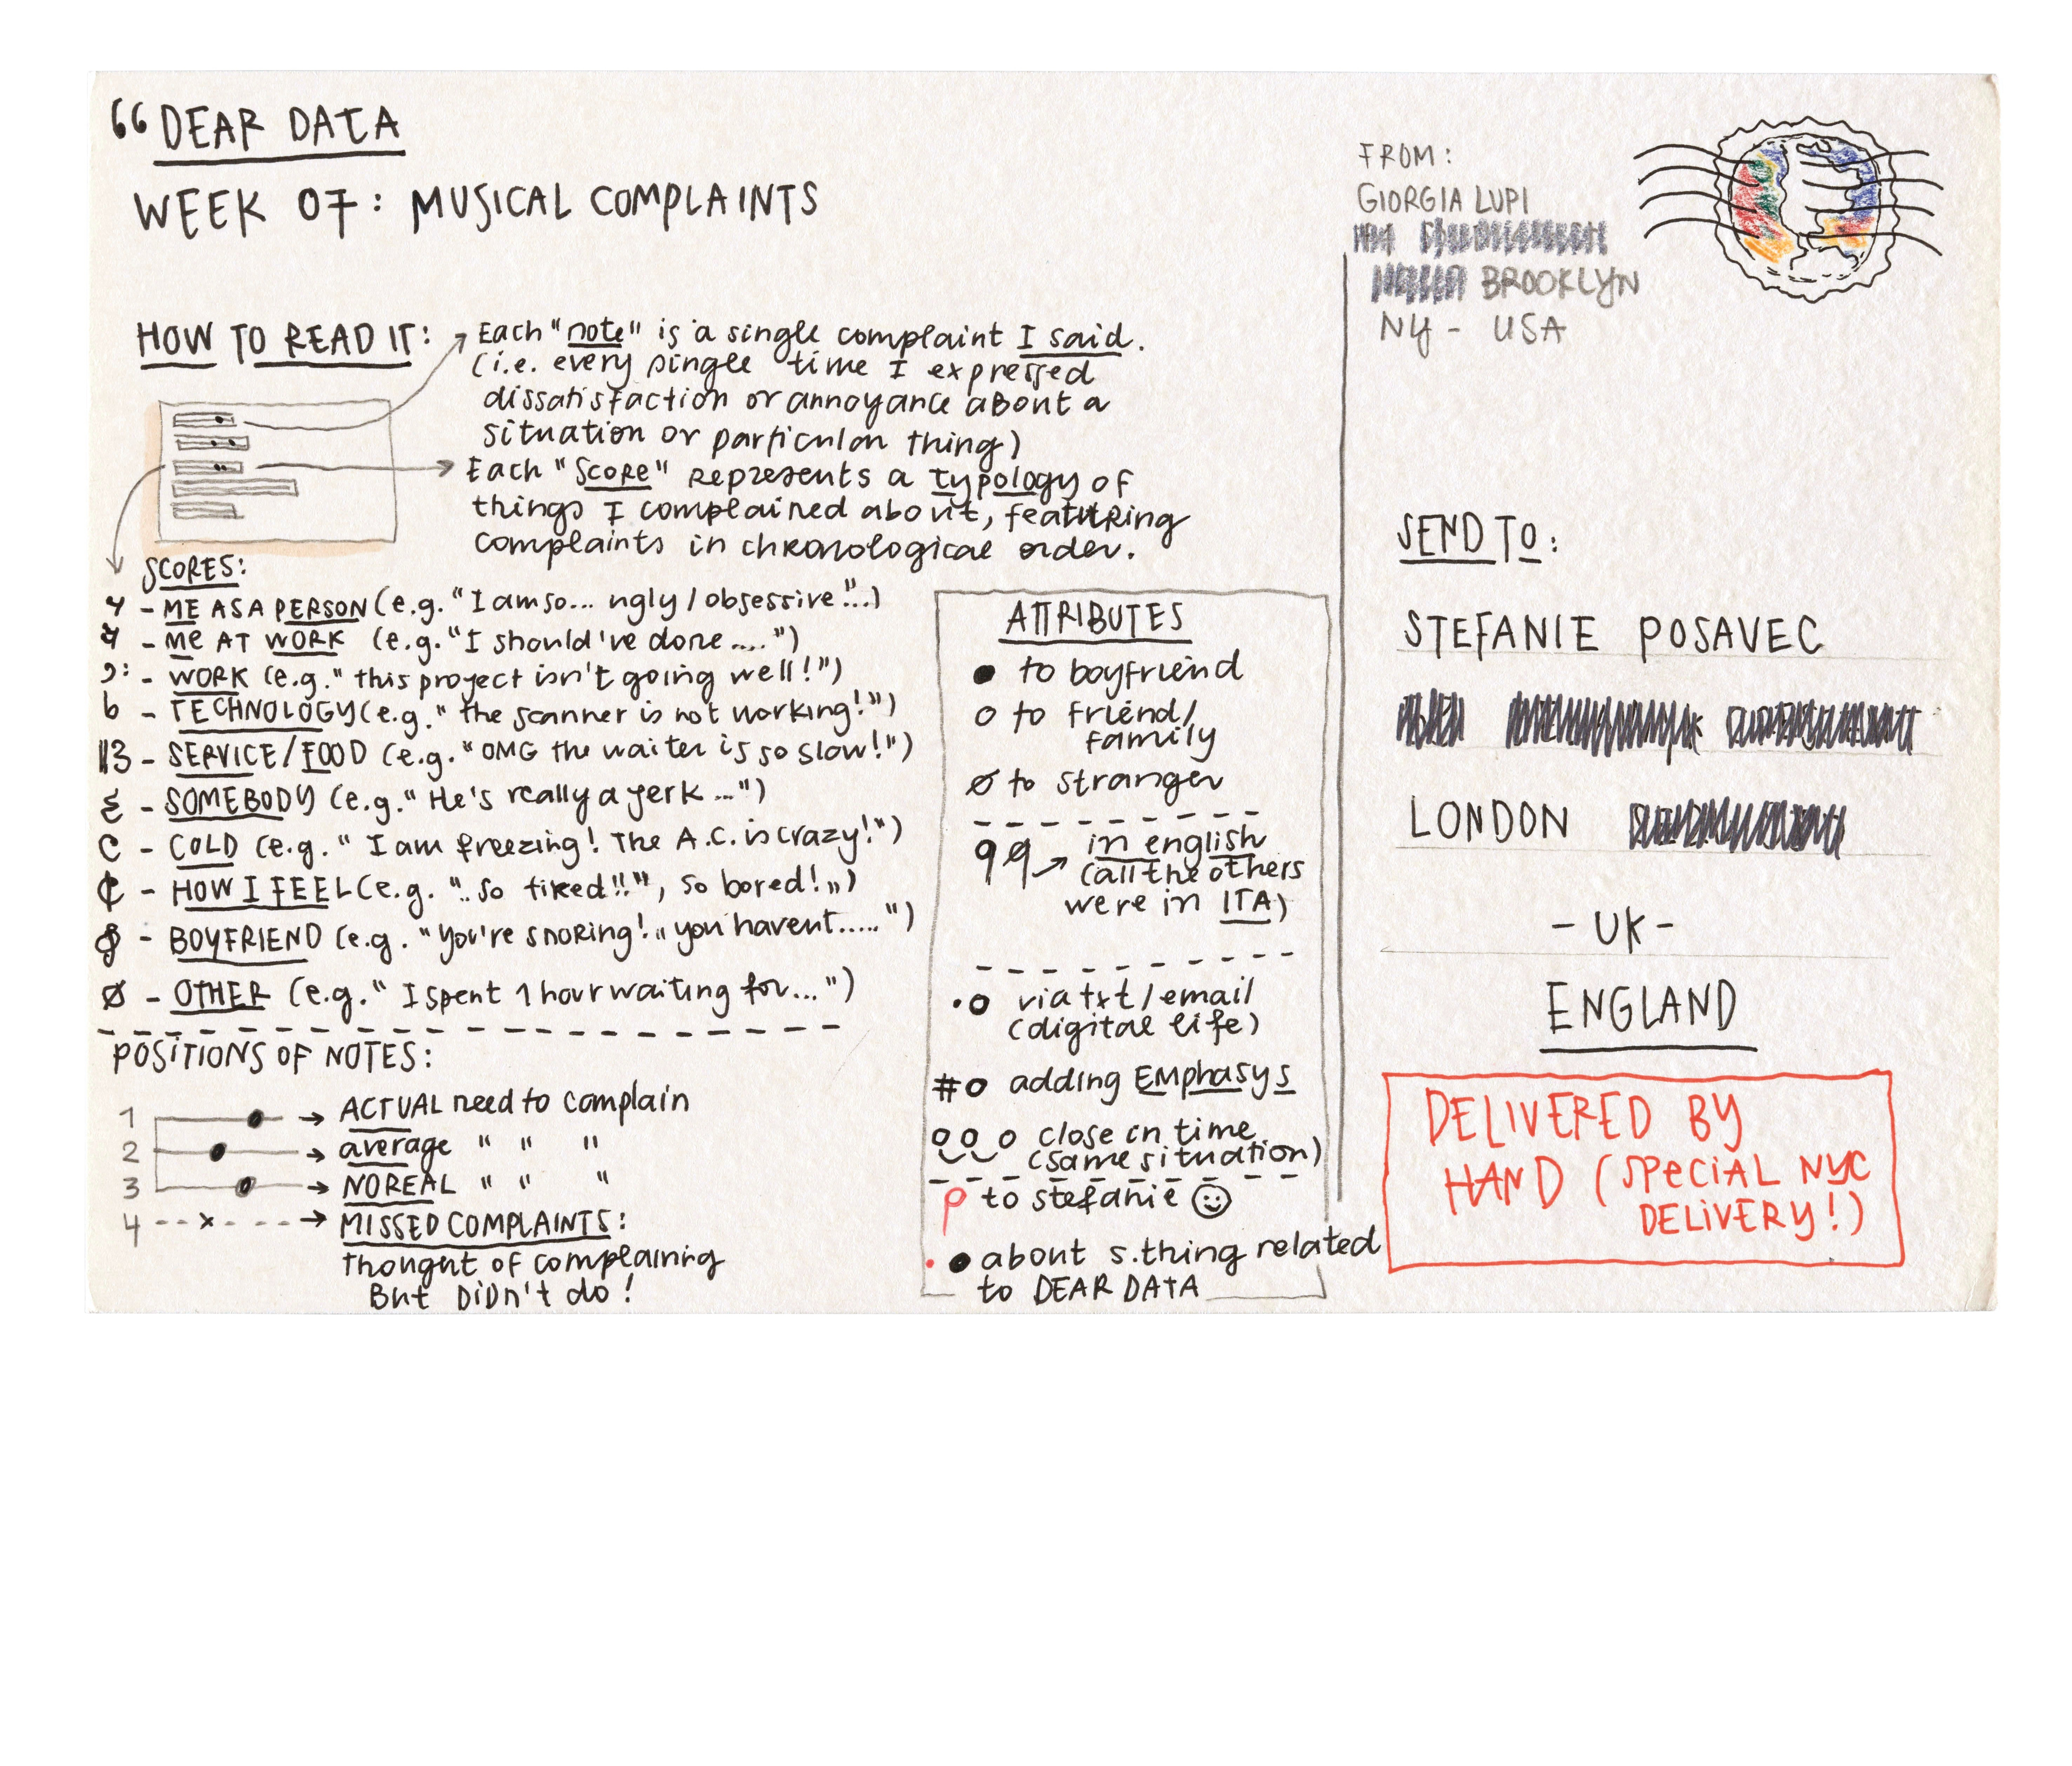 “DEAR DATA
WEEK 07: MUSICAL COMPLAINTS
HOW TO READ IT:
Each "note" is a single complaint I said.
(i.e. every single time I expressed
dissatisfaction or annoyance about a
situation or particular thing)
Each "SCORE" represents a typology of
things I complained about, featuring
complaints in chronological order.
SCORES:
- ME AS A PERSON (e.g. "I am so... ugly / obsessive"...)
- Me AT WORK (e.g. "I should've done....")
- WORK (e.g. "this project isn't going well!")
- TECHNOLOGY (e.g. "the scanner is not working!")
- SERVICE / FOOD (e.g. "OMG the waiter is so slow!")
- SOMEBODY (e.g. "He's really a jerk...")
- COLD (e.g. "I am freezing! The A.C. is crazy!")
- HOW I FEEL (e.g. "..so tired!!", so bored!")
- BOYFRIEND (e.g. "you're snoring!" you havent.....")
- OTHER (e.g. "I spent 1 hour waiting for...")
POSITIONS OF NOTES:
1 → ACTUAL need to complain
2 → average " " "
3 → NO REAL " " "
4 --x--- → MISSED COMPLAINTS:
Thought of complaining
But DiDn't do!
ATTRIBUTES
to boyfriend
to friend/
family
to stranger
in english
(all the others
were in ITA)
via txt / email
(digital life)
# adding Emphasys
close in time
(same situation)
to stefanie
about s.thing related
to DEAR DATA
FROM:
GIORGIA LUPI
BROOKLYN
NY - USA
SEND TO:
STEFANIE POSAVEC
LONDON
- UK -
ENGLAND
DELIVERED BY
HAND (SPECIAL NYC
DELIVERY!)